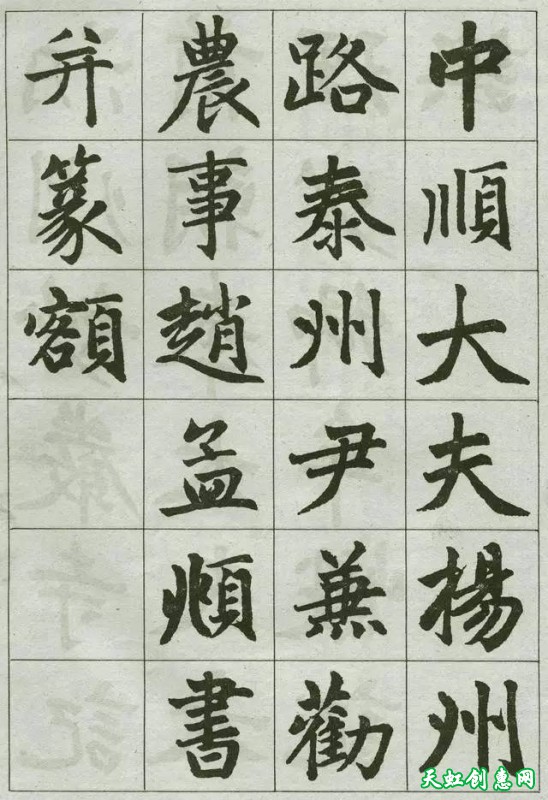 中順大夫揚州
路泰州尹兼勸
農事趙孟頫書
并篆額
天虹创惠网